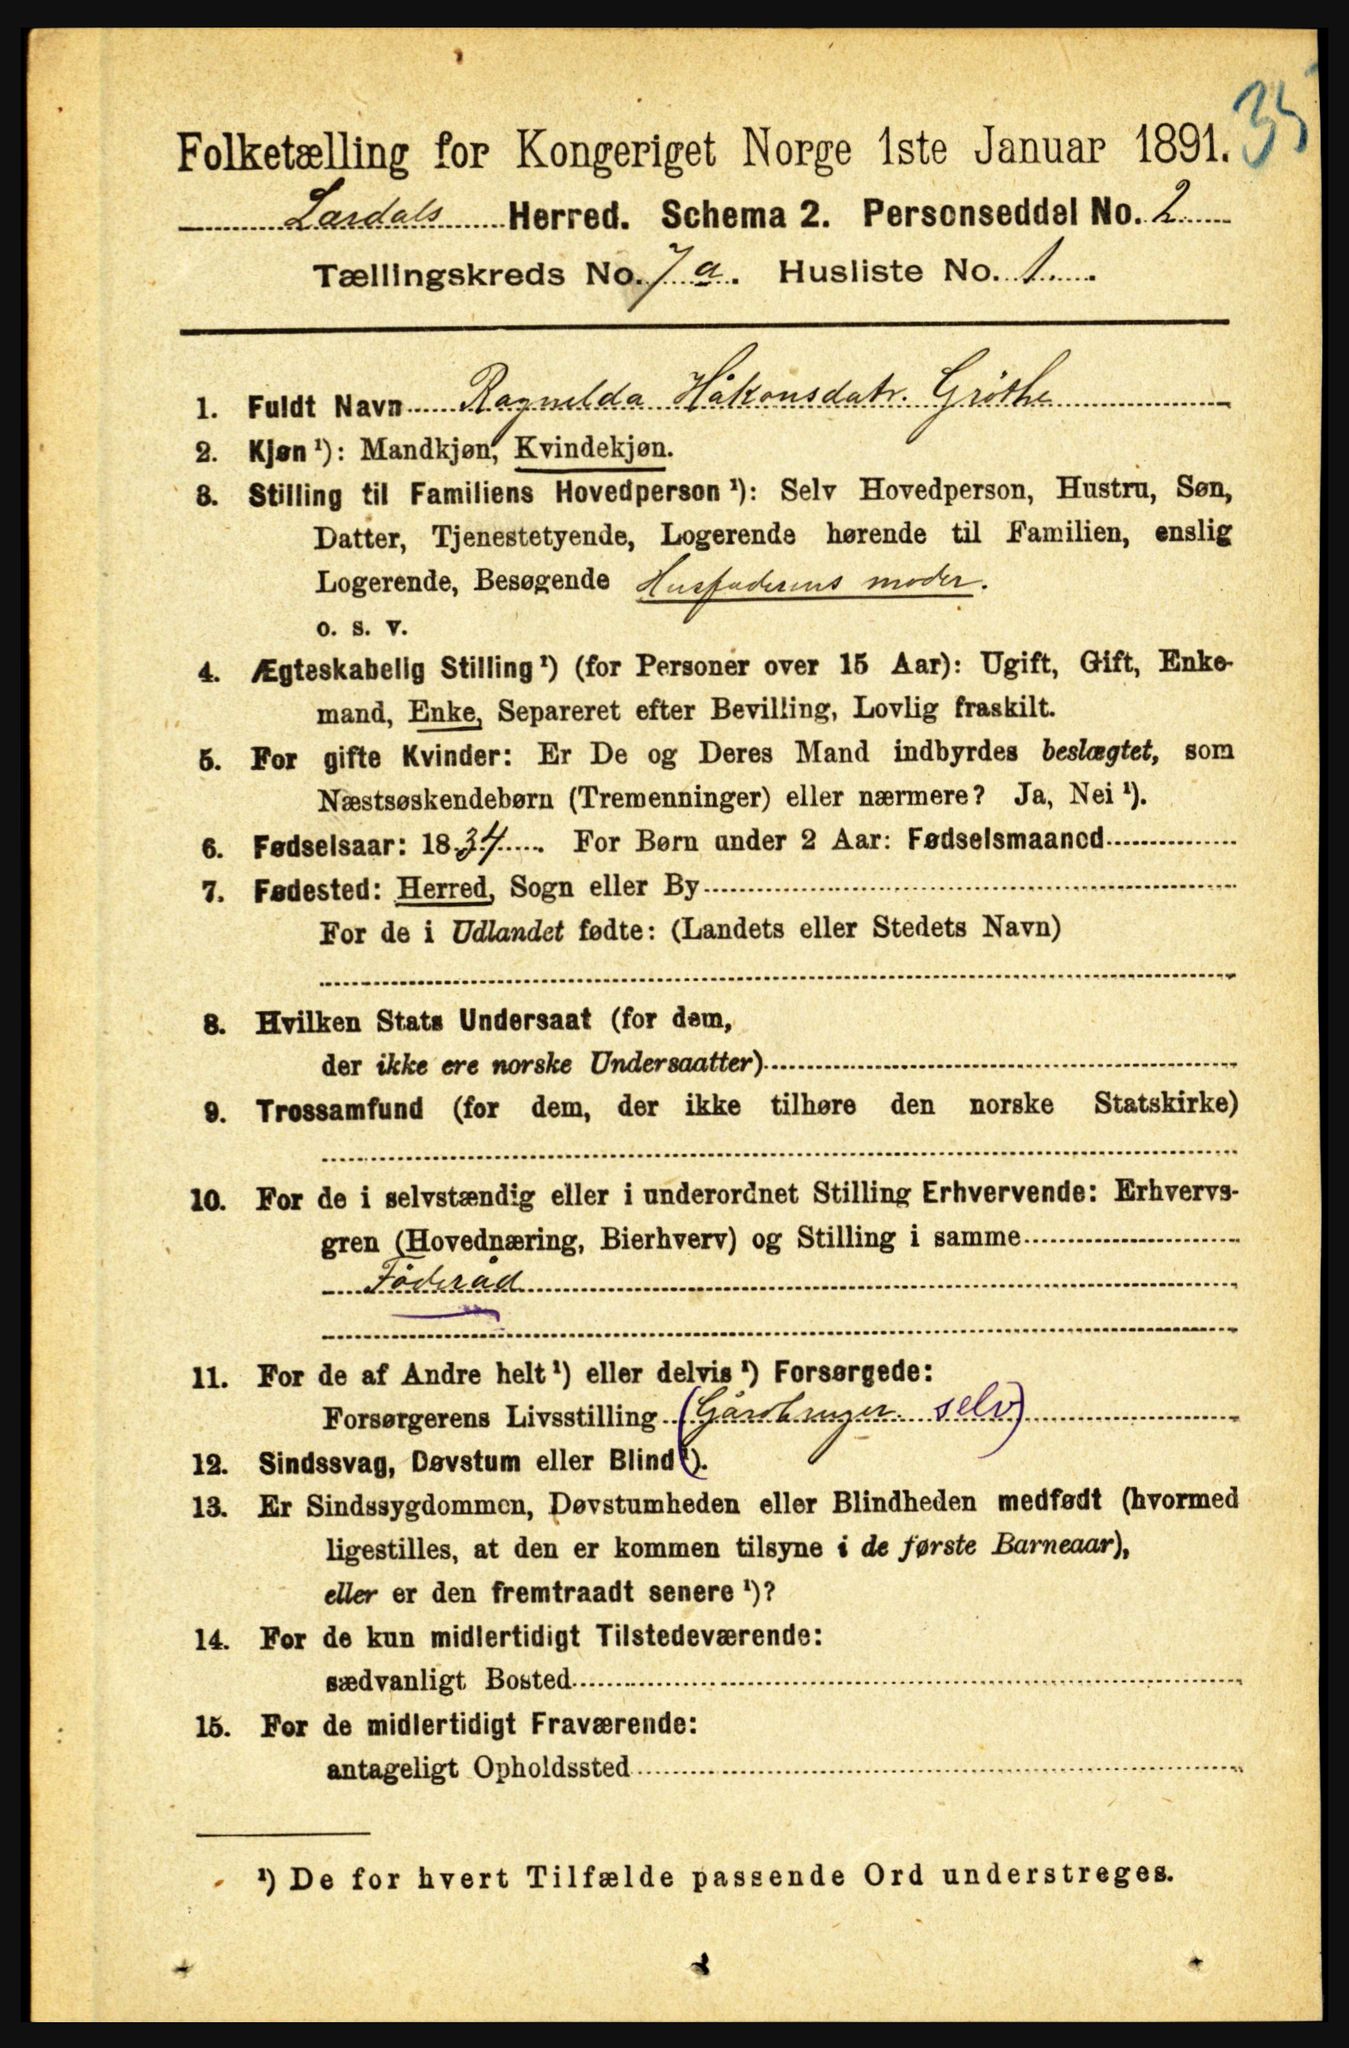 35
Folketælling for Kongeriget Norge 1ste Januar 1891.
Lærdals Herred. Schema 2. Personseddel No. 2
Tællingskreds No. 7 a. Husliste No. 1
1. Fuldt Navn Ragnilda Håkonsdatr. Gröthe
2. Kjøn ¹): Mandkjøn, Kvindekjøn.
3. Stilling til Familiens Hovedperson ¹): Selv Hovedperson, Hustru, Søn,
Datter, Tjenestetyende, Logerende hørende til Familien, enslig
Logerende, Besøgende Husfaderens moder.
o. s. v.
4. Ægteskabelig Stilling ¹) (for Personer over 15 Aar): Ugift, Gift, Enke-
mand, Enke, Separeret efter Bevilling, Lovlig fraskilt.
5. For gifte Kvinder: Er De og Deres Mand indbyrdes beslægtet, som
Næstsøskendebørn (Tremenninger) eller nærmere? Ja, Nei ¹).
6. Fødselsaar: 1834. For Børn under 2 Aar: Fødselsmaaned
7. Fødested: Herred, Sogn eller By
For de i Udlandet fødte: (Landets eller Stedets Navn)
8. Hvilken Stats Undersaat (for dem,
der ikke ere norske Undersaatter)
9. Trossamfund (for dem, der ikke tilhøre den norske Statskirke)
10. For de i selvstændig eller i underordnet Stilling Erhvervende: Erhvervs-
gren (Hovednæring, Bierhverv) og Stilling i samme
Föderåd
11. For de af Andre helt ¹) eller delvis ¹) Forsørgede:
Forsørgerens Livsstilling (Gårdbruger selv)
12. Sindssvag, Døvstum eller Blind ¹).
13. Er Sindssygdommen, Døvstumheden eller Blindheden medfødt (hvormed
ligestilles, at den er kommen tilsyne i de første Barneaar),
eller er den fremtraadt senere ¹)?
14. For de kun midlertidigt Tilstedeværende:
sædvanligt Bosted
15. For de midlertidigt Fraværende:
antageligt Opholdssted
¹) De for hvert Tilfælde passende Ord understreges.